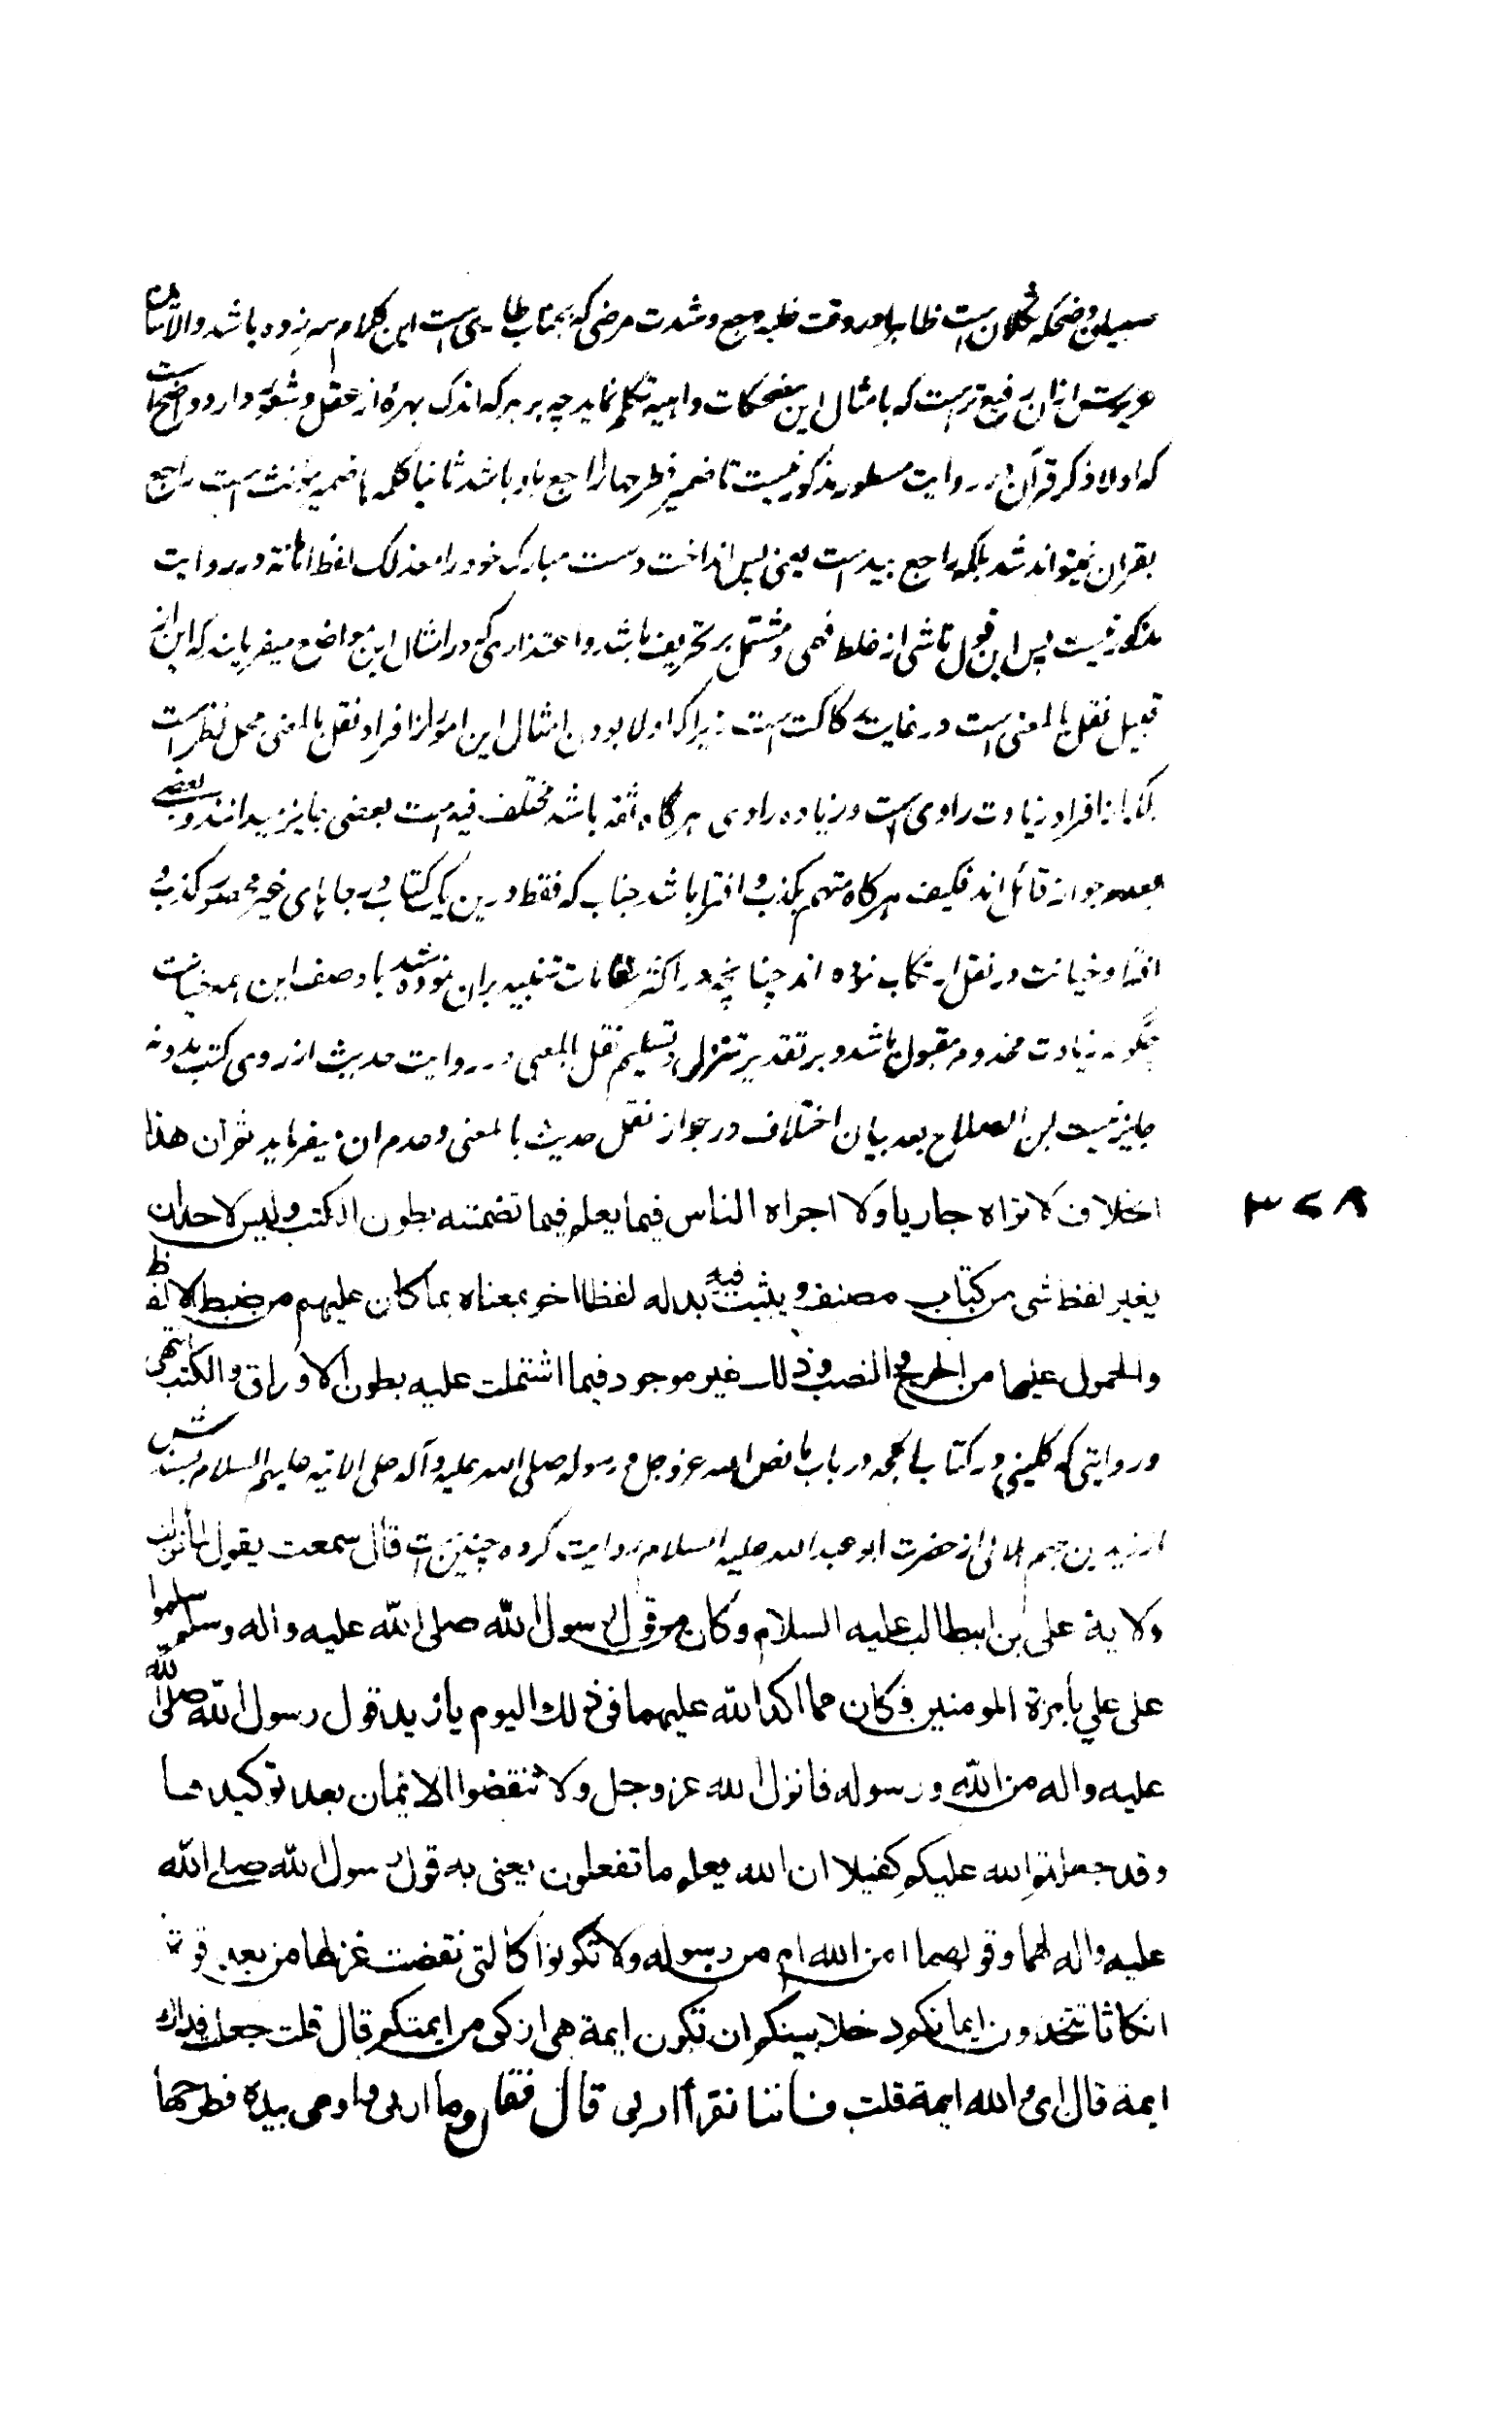 ضحکه ثکلان است ظاهرا در وقت غلبه وجع و شدت مرضی که بجناب طاری است این کلام سر زده باشد والا شان
ازان رفیع تر است که بامثال این مضحکات واهیه تکلم نماید چه بر هر که اندک بهرهٔ از عقل و شعور دارد واضح است
که اولا ذکر قرآن در روایت مسطور مذکور نیست تا ضمیر فطرحها راجع باو باشد ثانیا کلمه ها ضمیر مؤنث است راجع
بقران نمیتواند شد بلکه راجع بید است یعنی پس انداخت دست مبارک خود را معذلک لفظ اهانة در روایت
مذکور نیست پس این قول ناشی از غلط فهمی و مشتمل بر تحریف باشد و اعتذاری که در امثال این مواضع میفرمایند که این از
قبیل نقل بالمعنی است در غایت رکاکت است زیرا که اولا بودن امثال این امور از افراد نقل بالمعنی محل نظر است
بلکه از افراد زیادت راوی است و زیاده راوی هرگاه ثقه باشد مختلف فیه است بعضی جایز میدانند و بعضی
بعدم جواز قائل اند فکیف هرگاه متهم بکذب و افترا باشد جناب که فقط درین یک کتاب در جاهای غیر محصور کذب و
افترا و خیانت در نقل ارتکاب نموده اند چنانچه در اکثر مقامات تنبیه بران نموده شد با وصف این همه خیانت
چگونه زیادت مخدوم مقبول باشد و بر تقدیر تنزل و تسلیم نقل بالمعنی در روایت حدیث از روی کتب مدونه
جایز نیست ابن الصلاح بعد بیان اختلاف در جواز نقل حدیث بالمعنی و عدم ان میفرماید ثم ان هذا
اخلاف لا نراه جاریا ولا اجراه الناس فیما یعلم فیما تضمنته بطون الکتب ولیس لاحد ان
یغیر لفظ شی من کتاب مصنف و یثبت فیه بدله لفظا اخر بمعناه بما کان علیهم من ضبط الالفاظ
والحمول علیها من الحرج والنصب وذلک غیر موجود فیما اشتملت علیه بطون الاوراق والکتب انتهی
و روایتی که کلینی در کتاب الحجه در باب ما نص الله عزوجل و رسوله صلی الله علیه و آله علی الائمه علیهم السلام بسندش
از زید بن جهم الهلالی از حضرت ابو عبدالله علیه السلام روایت کرده چنین است قال سمعت یقول لما نزلت
ولایة علی بن ابیطالب علیه السلام وکان من قول رسول الله صلی الله علیه واله وسلم سلموا
علی علی بامرة المومنین فکان مما اکد الله علیهما فی ذلك الیوم یا زید قول رسول الله صلی الله
علیه واله من الله و رسوله فانزل الله عزوجل ولا تنقضوا الایمان بعد توکیدها
وقد جعلتم الله علیکم کفیلا ان الله یعلم ما تفعلون یعنی به قول رسول الله صلی الله
علیه واله لهما وقولهما امن الله ام من رسوله ولا تکونوا کالتی نقضت غزلها من بعد قوة
انکاثا تتخذون ایمانکم دخلا بینکم ان تکون ایمة هی ازکی من ایمتکم قال قلت جعلت فداك
ایمة قال ای والله ایمة قلت فاننا نقرأ اربی قال فقال وما اربی و اومی بیده فطرحها
۳۶۸